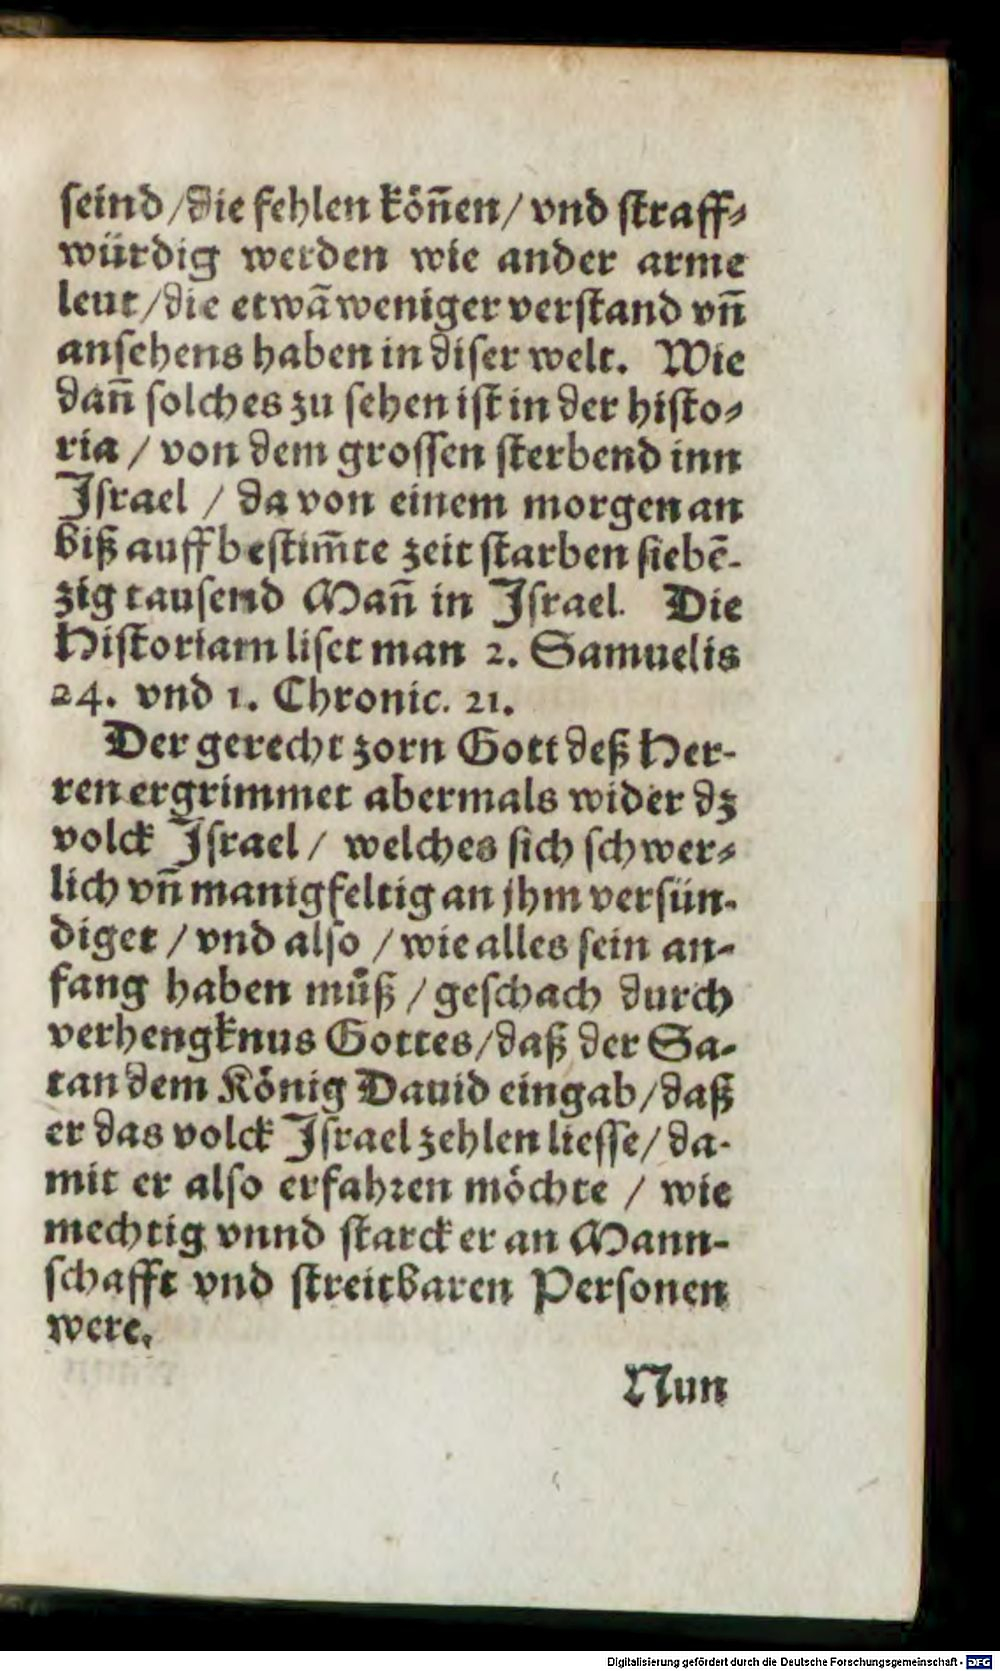 seind / die fehlen köñen / vnd straff-
würdig werden wie ander arme
leut / die etwã weniger verstand vñ
ansehens haben in diser welt. Wie
dañ solches zu sehen ist in der histo-
ria / von dem grossen sterbend inn
Israel / da von einem morgen an
biß auff bestim̃te zeit starben siebẽ-
zig tausend Mañ in Israel. Die
Historiam liset man 2. Samuelis
24. vnd 1. Chronic. 21.
Der gerecht zorn Gott deß Her-
ren ergrimmet abermals wider dz
volck Israel / welches sich schwer-
lich vñ manigfeltig an jhm versün-
diget / vnd also / wie alles sein an-
fang haben můß / geschach durch
verhengknus Gottes / daß der Sa-
tan dem König Dauid eingab / daß
er das volck Israel zehlen liesse / da-
mit er also erfahren möchte / wie
mechtig vnnd starck er an Mann-
schafft vnd streitbaren Personen
were.
Nun
Digitalisierung gefördert durch die Deutsche Forschungsgemeinschaft - DFG